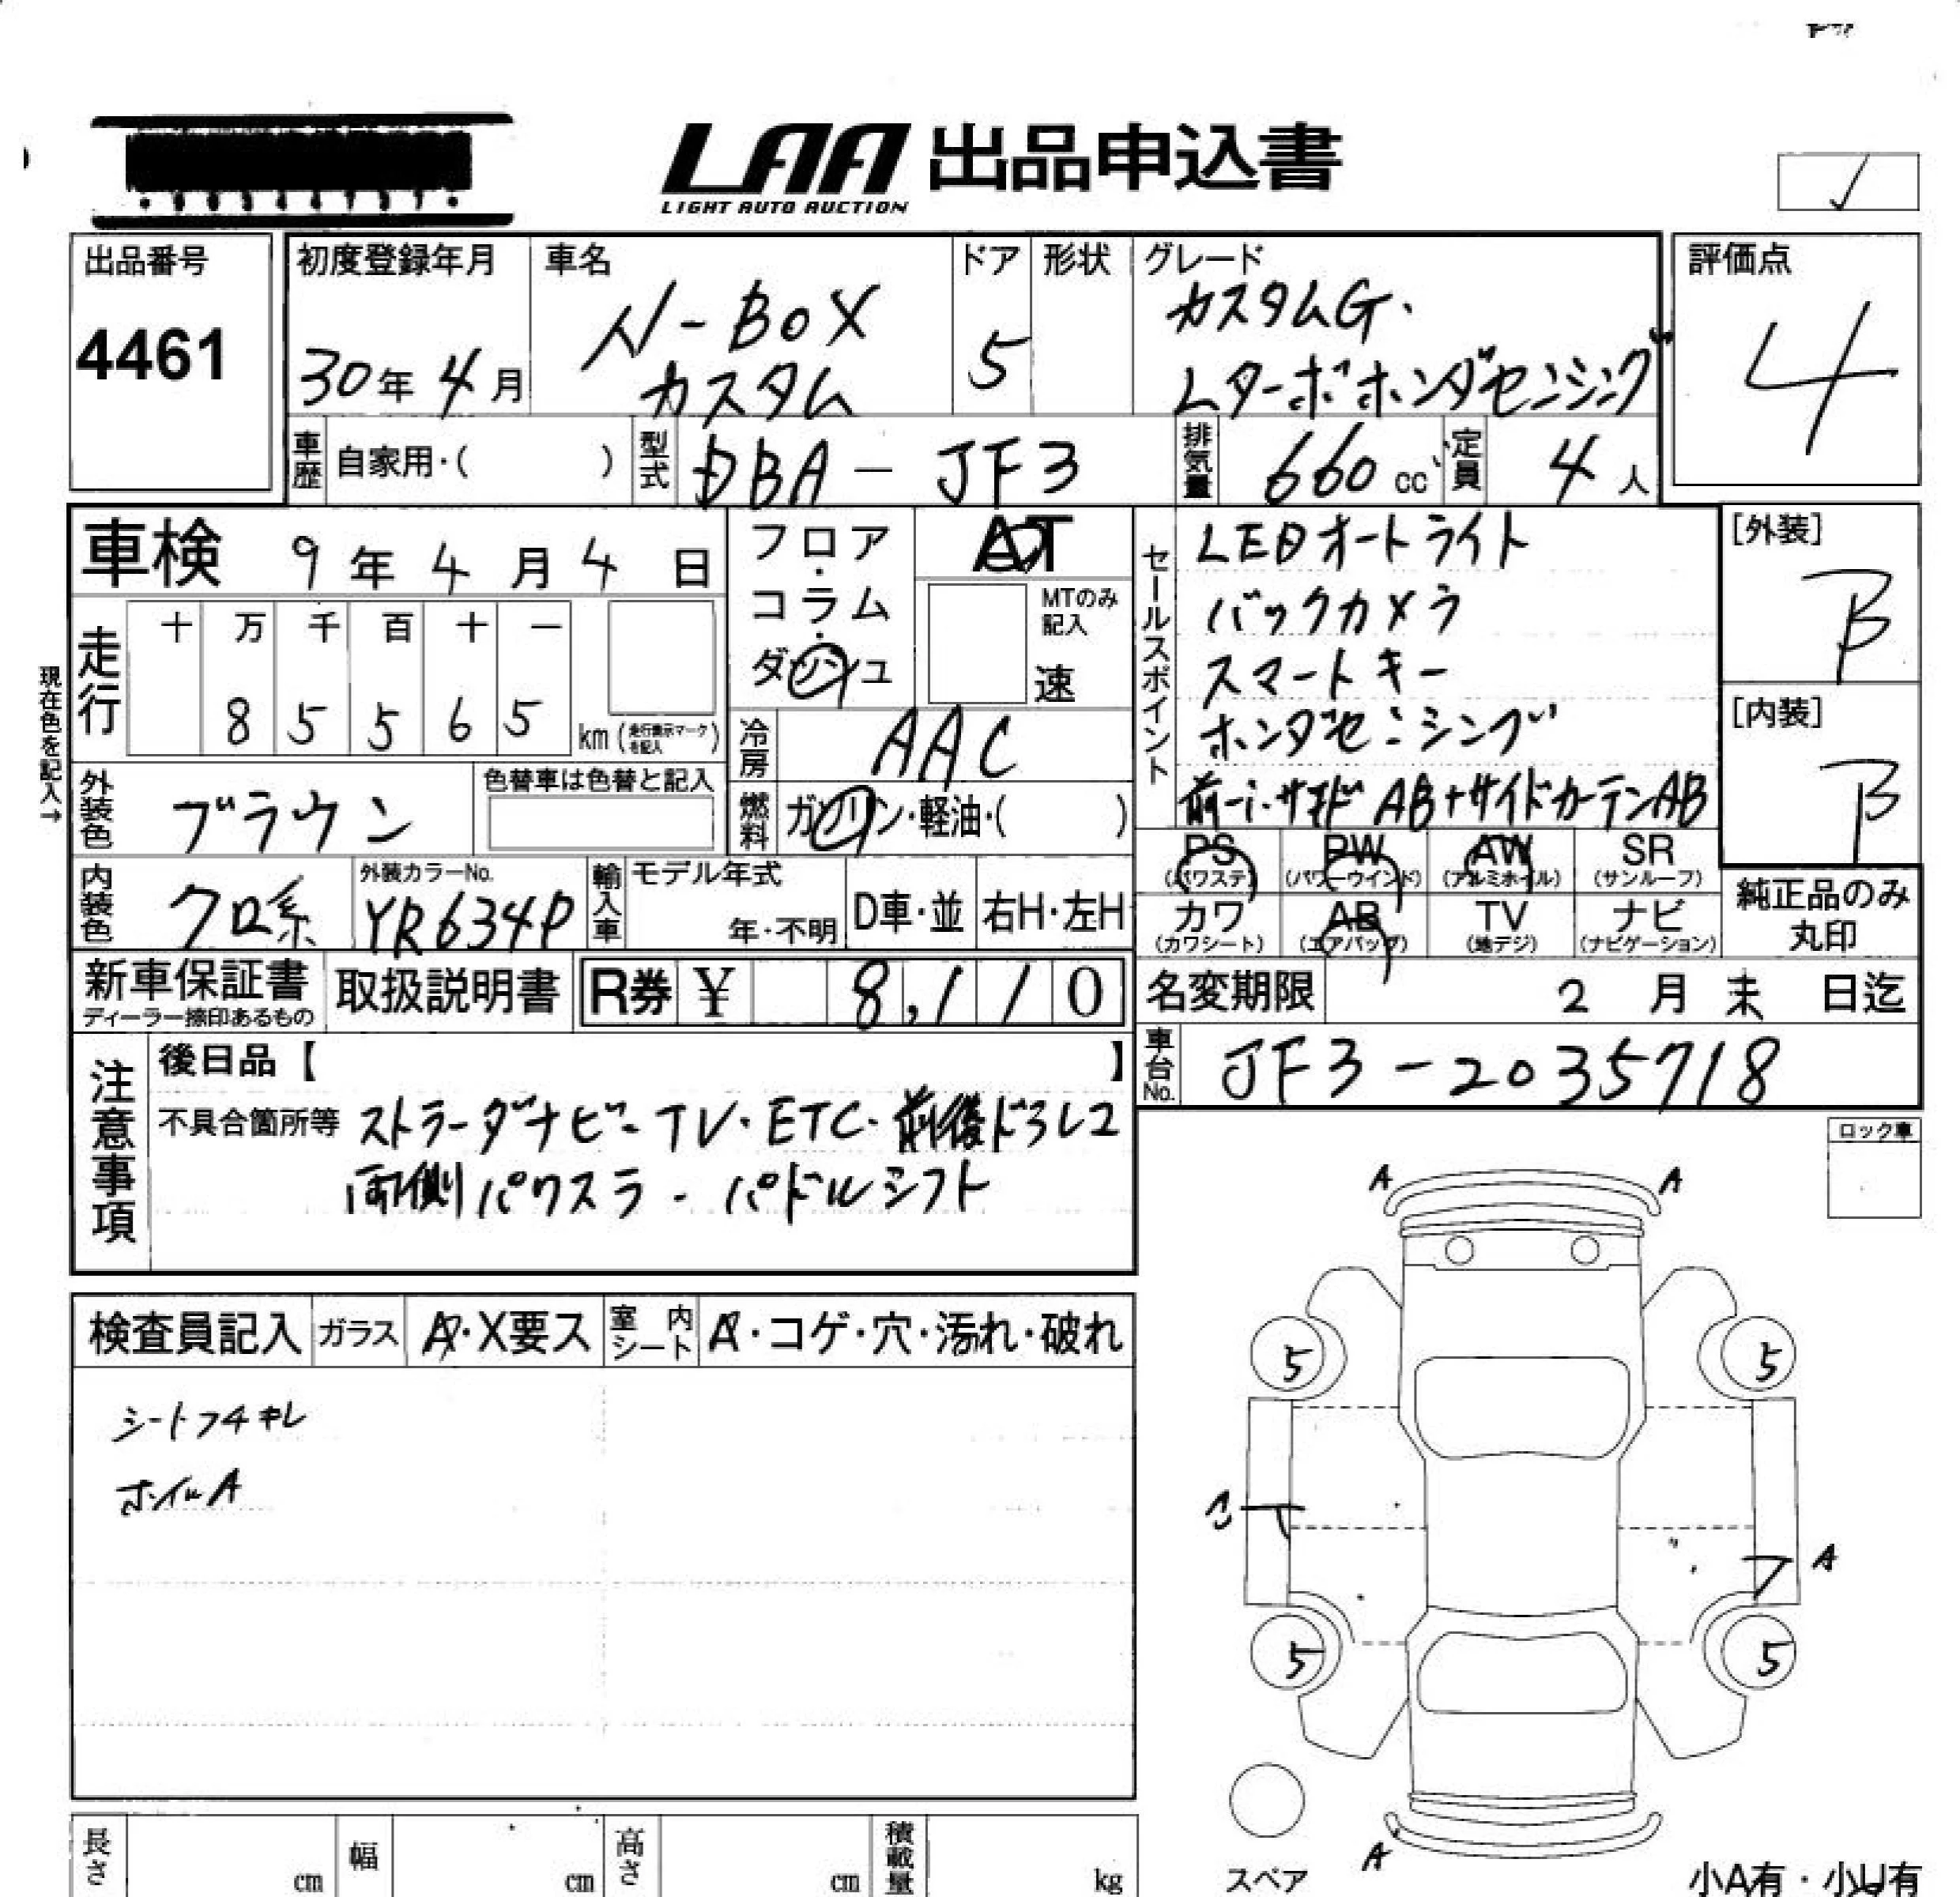 LAA 出品申込書
LIGHT AUTO AUCTION
出品番号
4461
初度登録年月
30年 4月
車名
N-BOX
カスタム
ドア
5
形状
グレード
カスタムG・
Lターボホンダセンシング
評価点
4
車歴 自家用・( )
型式 DBA-JF3
排気量 660 cc
定員 4人
車検 9年 4月 4日
走行
十 万 千 百 十 一
8 5 5 6 5 km (走行表示マークを記入)
現在色を記入→
フロア・コラム・ダッシュ
AT
MTのみ記入
速
冷房 AAC
燃料 ガソリン・軽油・( )
外装色 ブラウン
色替車は色替と記入
内装色 クロ系
外装カラーNo.
YR634P
輸入車 モデル年式
年・不明
D車・並 右H・左H
セールスポイント
LEDオートライト
バックカメラ
スマートキー
ホンダセンシング
前-i-サイドAB+サイドカーテンAB
[外装]
B
[内装]
B
PS (パワステ)
PW (パワーウインド)
AW (アルミホイル)
SR (サンルーフ)
カワ (カワシート)
AB (エアバッグ)
TV (地デジ)
ナビ (ナビゲーション)
純正品のみ
丸印
新車保証書
ディーラー捺印あるもの
取扱説明書
R券 ¥ 8,110
名変期限 2月 末日迄
車台No. JF3-2035718
注意事項
後日品【 】
不具合箇所等 ストラーダナビ-TV・ETC・前後ドラレコ
両側パワスラ-パドルシフト
ロック車
検査員記入 ガラス A・X要ス 室内シート A・コゲ・穴・汚れ・破れ
シートフチキレ
ホイルA
A A
5 5
A
5 5
A
スペア
長さ cm 幅 cm 高さ cm 積載量 kg
小A有・小U有